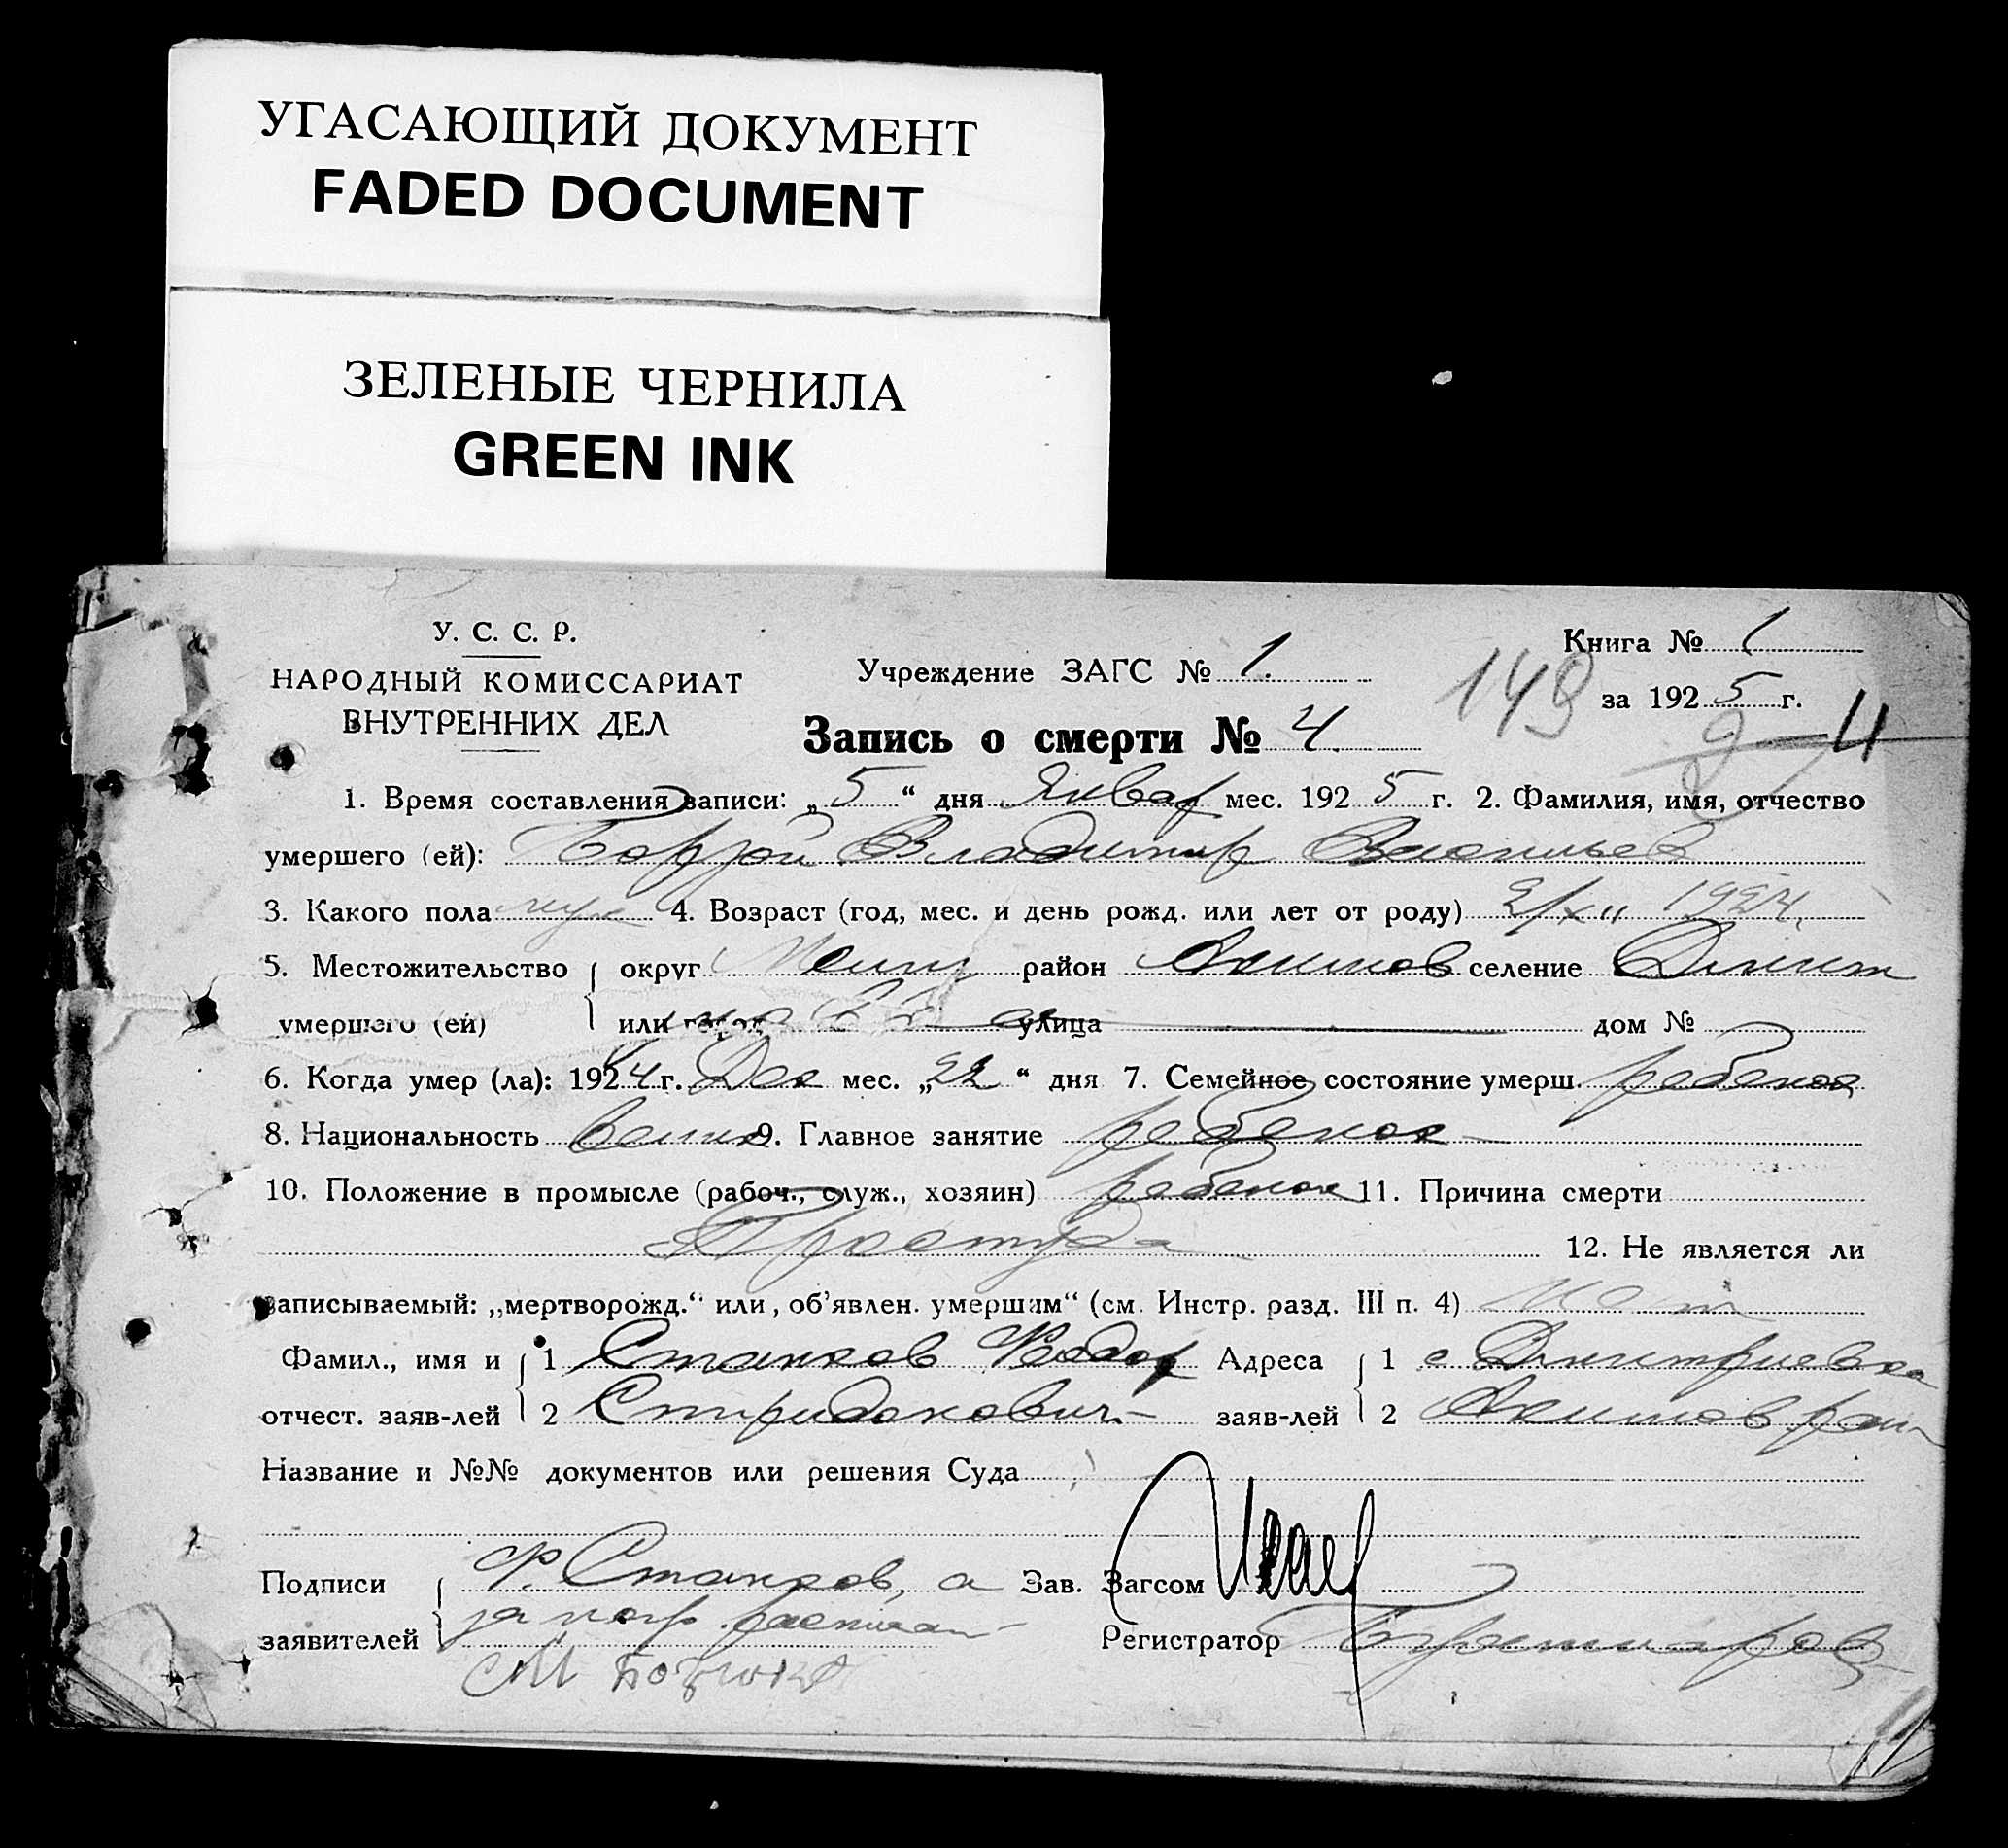 УГАСАЮЩИЙ ДОКУМЕНТ
FADED DOCUMENT
ЗЕЛЕНЫЕ ЧЕРНИЛА
GREEN INK
У. С. С. Р.
НАРОДНЫЙ КОМИССАРИАТ
ВНУТРЕННИХ ДЕЛ
Учреждение ЗАГС № 1.
Книга № 1
за 1925 г.
149
Запись о смерти № 4.
1. Время составления записи: „5“ дня Январ мес. 1925 г. 2. Фамилия, имя, отчество
умершего (ей): Владимир
3. Какого пола муж 4. Возраст (год, мес. и день рожд. или лет от роду) 1924.
5. Местожительство округ район Акимов селение Дмит
умершего (ей) или улица дом №
6. Когда умер (ла): 1924 г. Дек мес. „22“ дня 7. Семейное состояние умерш. ребенок
8. Национальность 9. Главное занятие ребенок
10. Положение в промысле (рабоч., служ., хозяин) ребенок 11. Причина смерти
Простуда 12. Не является ли
записываемый: „мертворожд.“ или „об'явлен. умершим“ (см. Инстр. разд. III п. 4) Нет
Фамил., имя и 1 Станков Феодор Адреса 1 с Дмитриевка
отчест. заяв-лей 2 Спиридонович заяв-лей 2 Акимов рай
Название и №№ документов или решения Суда
Подписи Ф. Станков, а Зав. Загсом
заявителей за негр. расписал Регистратор